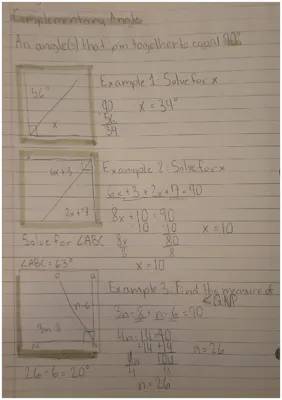 Complementary Angle
An angle(s) that join together to equal 90°
Example 1: Solve for x
56°
x
90
56
34
x = 34°
Example 2: Solve for x
6x+3
2x+7
6x+3+2x+7=90
8x+10=90
10 10
x=10
Solve for ∠ABC
8x 80
8 8
∠ABC=63°
x=10
Example 3: Find the measure of
∠GNP
n-6
3n-8
4n-14=90
+14 +14
4n 104
n=26
26-6=20°
n=26